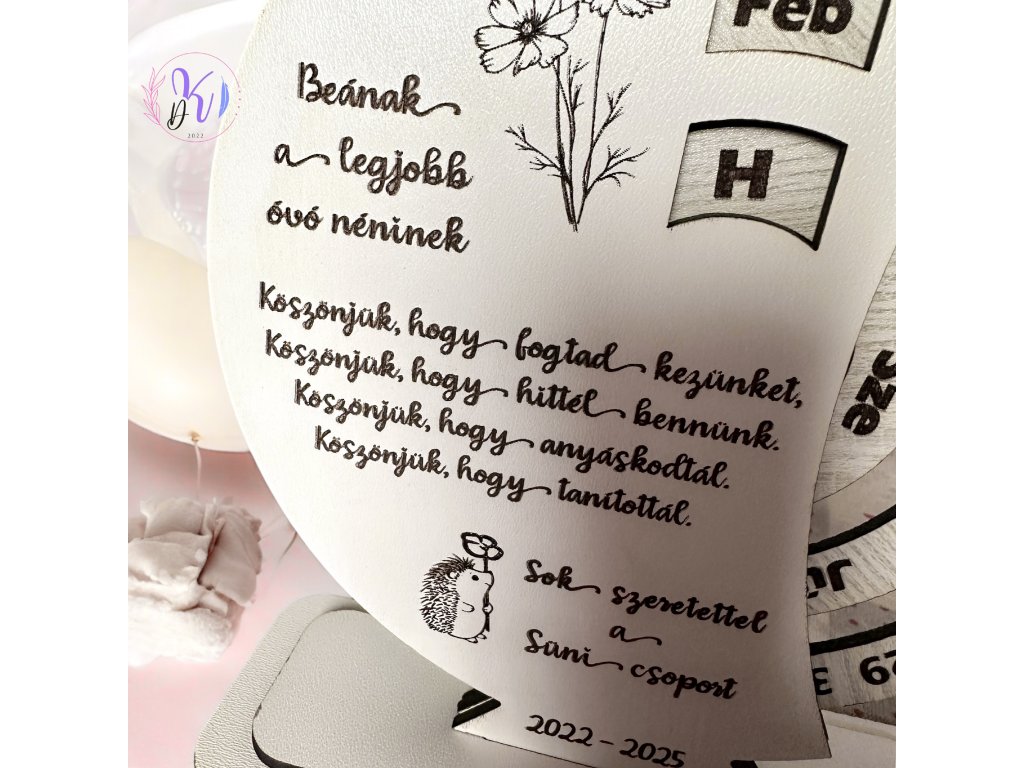 DK
2022
Feb
H
Beának
a legjobb
óvó néninek
Köszönjük, hogy fogtad kezünket,
Köszönjük, hogy hittél bennünk.
Köszönjük, hogy anyáskodtál.
Köszönjük, hogy tanítottál.
Sok szeretettel
a
Süni csoport
2022 - 2025
Sze
29